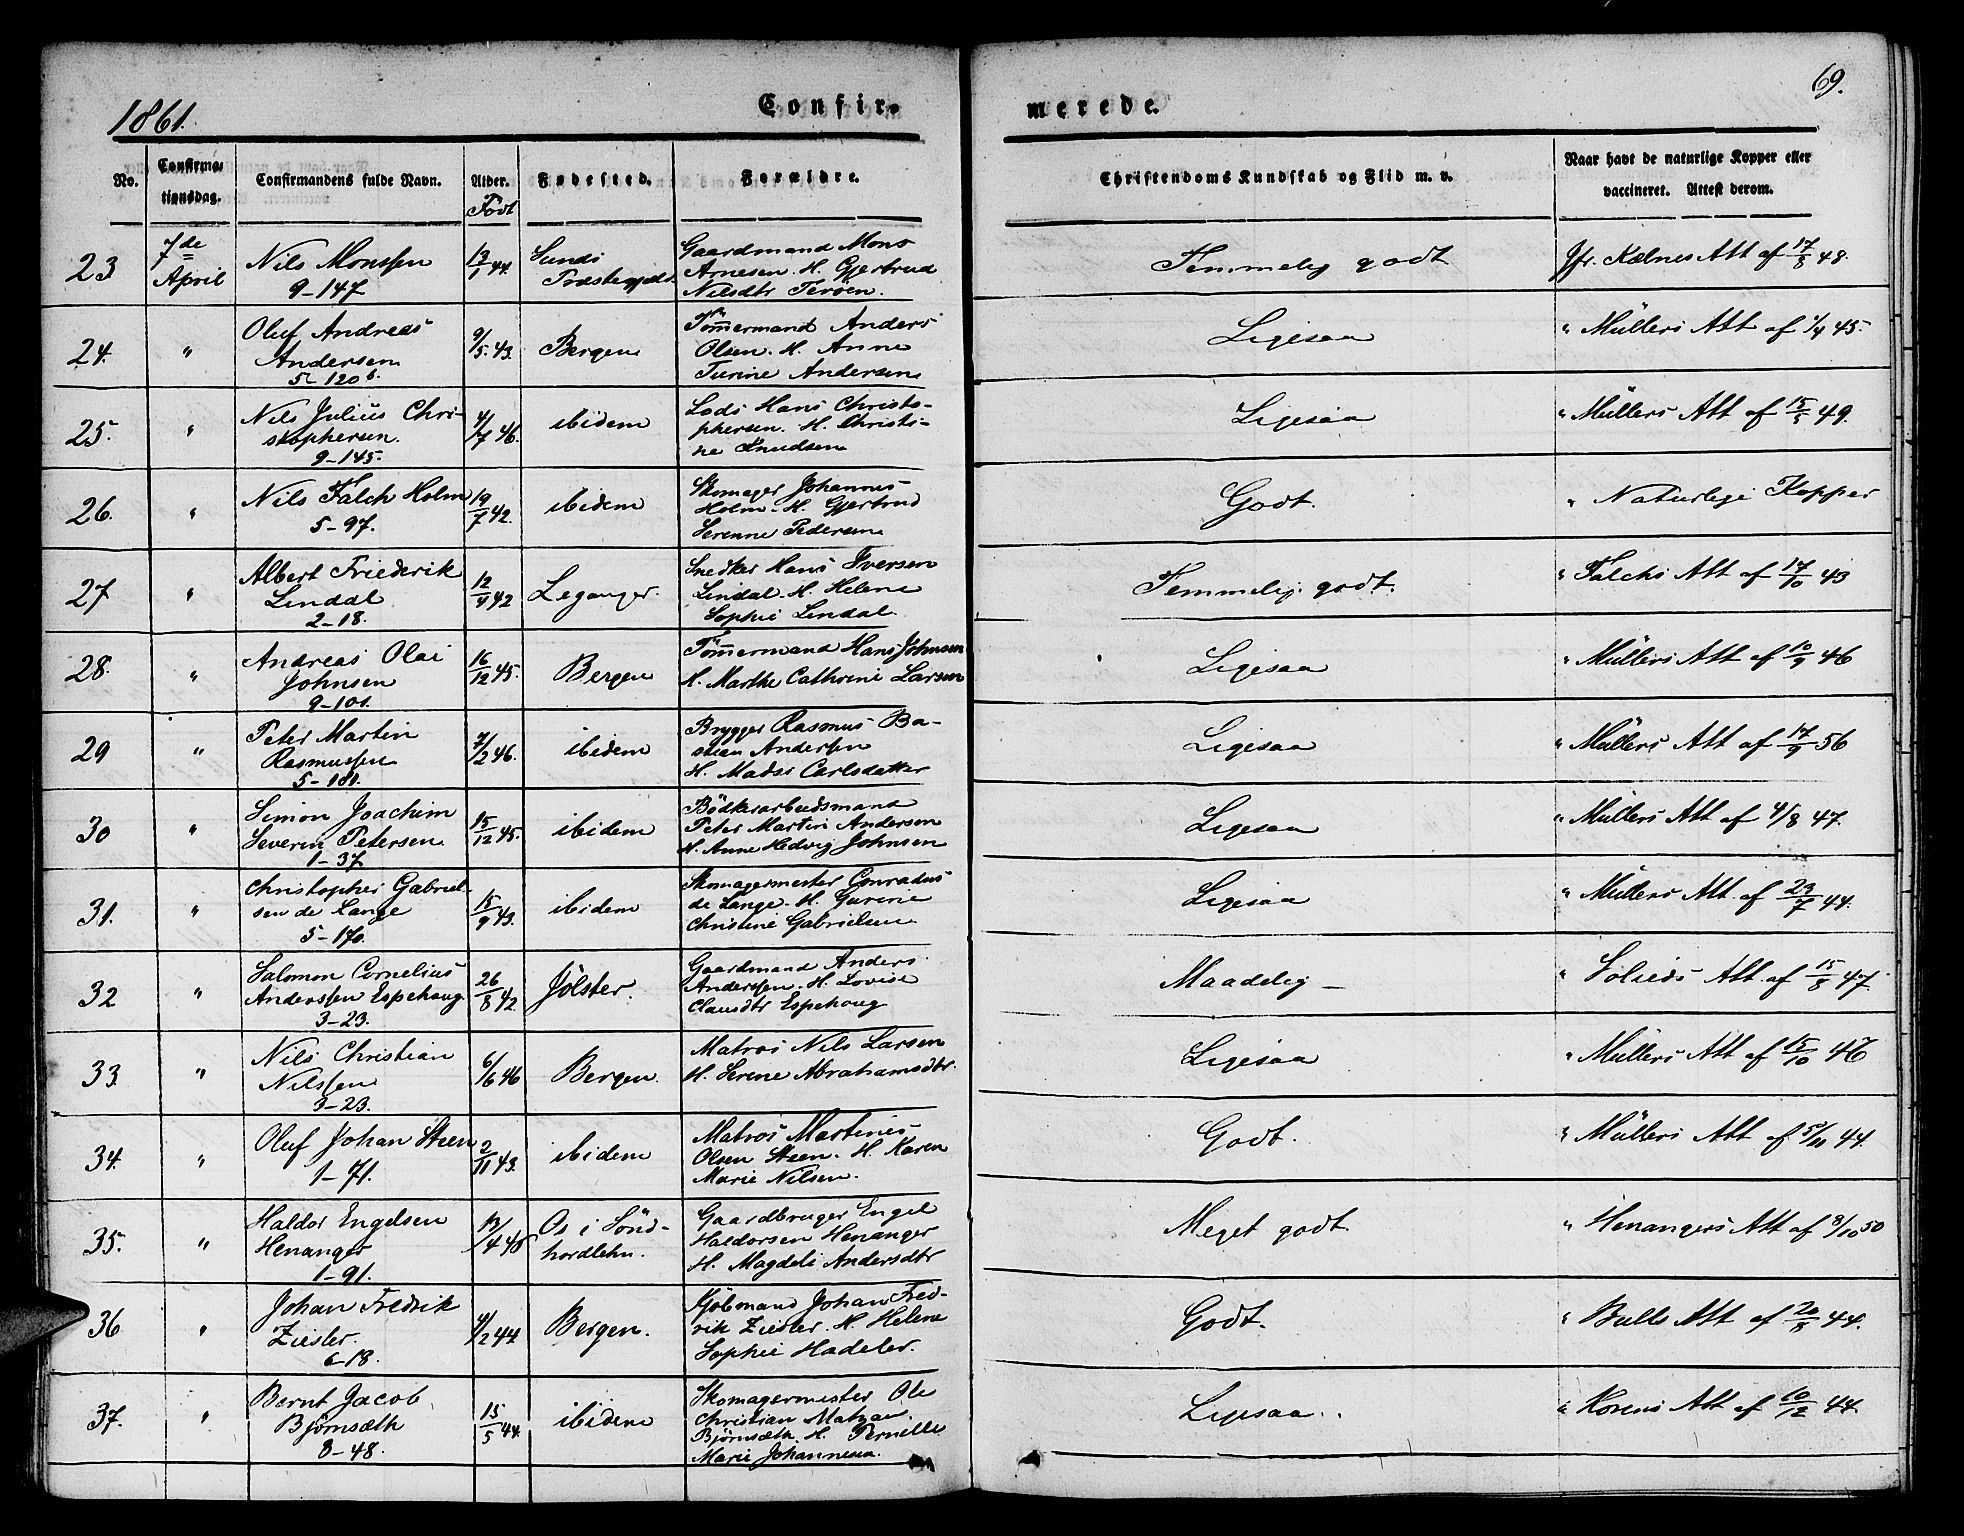 1861.
Confir-
merede.
69.
No.
Confirma-
tionsdag.
Confirmandens fulde Navn.
Alder.
Födt
Fødested.
Forældre.
Christendoms Kundskab og Flid m. v.
Naar havt de naturlige Kopper eller
vaccineret. Attest derom.
23
7de
April
Nils Monssen
9-147
13/1 44.
Sunds
Præstegjeld.
Gaardmand Mons
Arnesen. H. Gjertrud
Nilsdtr Teröen.
Temmelig godt
Att af 17/8 48.
24.
"
Oluf Andreas
Andersen
5-120 b.
9/5 43.
Bergen
Tömmermand Anders
Olsen. H. Anne
Turine Andersen
Ligesaa
" Müllers Att af 1/4 45.
25.
"
Nils Julius Chri-
stophersen.
9-145.
4/7 46.
ibidem
Lods Hans Christo-
phersen. H. Christi-
ne Knudsen
Ligesaa
" Müllers Att af 15/5 49.
26.
"
Nils Falch Holm
5-97.
19/7 42.
ibidem
Skomager Johannes
Holm. H. Gjertrud
Serenne Pedersen
Godt.
" Naturlige Kopper
27
"
Albert Friederik
Lindal
2-18.
12/4 42
Leganger.
Snedker Hans Iversen
Lindal. H. Helene
Sophie Lindal.
Temmelig godt.
" Falchs Att af 17/10 43
28.
"
Andreas Olai
Johnsen
9-101.
16/12 45.
Bergen
Tömmermand Hans Johnsen
H. Marthe Cathrine Larsen
Ligesaa
" Müllers Att af 10/9 46
29
"
Peter Martin
Rasmussen
5-181.
7/2 46.
ibidem
Brygger Rasmus Ba-
stian Anderssen
H. Madsi Carlsdatter
Ligesaa
" Müllers Att af 17/9 56
30
"
Simon Joachim
Severin Petersen.
1-37.
15/12 45.
ibidem
Bödkerarbeidsmand
Peter Martin Andersen
H. Anne Hedvig Johnsen
Ligesaa
" Müllers Att af 4/8 47.
31.
"
Christopher Gabriel-
sen de Lange
5-170.
15/9 43.
ibidem
Skomagermester Conradus
de Lange. H. Gurine
Christine Gabrielsen
Ligesaa
" Müllers Att af 23/7 44.
32
"
Salomon Cornelius
Anderssen Espehaug
3-23.
26/8 42
Jölster.
Gaardmand Anders
Anderssen. H. Lovise
Clausdtr Espehaug
Maadelig -
" Solieds Att af 15/8 47.
33.
"
Nils Christian
Nilssen
3-23.
6/6 46
Bergen.
Matros Nils Larsen
H. Serene Abrahamsdtr.
Ligesaa
" Müllers Att af 15/10 46
34.
"
Oluf Johan Steen
1-71.
2/11 43.
ibidem
Matros Martines
Olsen Steen. H. Karen
Marie Nilsen.
Godt.
" Müllers Att af 5/11 44.
35.
"
Haldor Engelsen
Henanger
1-91.
Os i Sönd-
hordlehn.
Gaardbruger Engel
Haldorsen Henanger
H. Magdeli Andersdtr
Meget godt
" Henangers Att af 3/10 50
36
"
Johan Fredrik
Ziesler.
6-18.
4/2 44
Bergen.
Kjöbmand Johan Fred-
rik Ziesler. H. Helene
Sophie Hadeler.
Godt.
" Bulls Att af 20/8 44.
37.
"
Bernt Jacob
Björnsæth
8-48.
15/5 44
ibidem
Skomagermester Ole
Christian Matzau
Björnsæth. H. Pernelle
Marie Johannesen.
Ligesaa.
" Korens Att af 10/12 44.